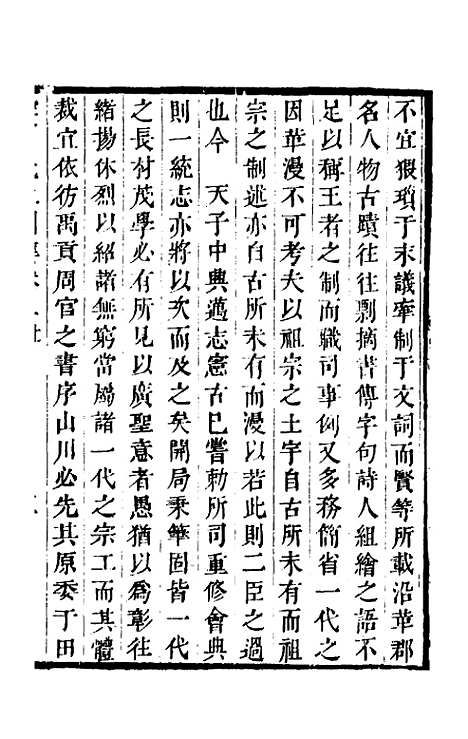 不宜猥瑣于末議牽制于文詞而賢等所載沿革郡
名人物古蹟往往剽摘書傳字句詩人組繪之語不
足以稱王者之制而職司事例又多務簡省一代之
因革漫不可考夫以祖宗之土宇自古所未有而祖
宗之制述亦自古所未有而漫以若此則二臣之過
也今　天子中興邁志憲古已嘗勅所司重修會典
則一統志亦將以次而及之矣開局秉筆固皆一代
之長材茂學必有所見以廣聖意者愚猶以為彰往
緒揚休烈以紹諸無窮當屬諸一代之宗工而其體
裁宜依彷禹貢周官之書序山川必先其原委于田